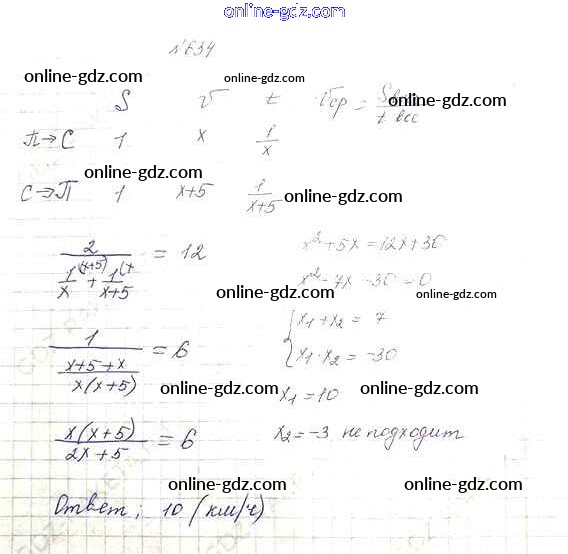 www.online-gdz.com
№634
online-gdz.com online-gdz.com
S v t vср = Sвсе/t все online-gdz.com
П→С 1 x 1/x
online-gdz.com
С→П 1 x+5 1/(x+5) online-gdz.com
2/(1/x (x+5) + 1/(x+5) (x) = 12
x²+5x=12x+30
x²-7x-30=0
online-gdz.com online-gdz.com
1/((x+5+x)/(x(x+5))) = 6
x₁+x₂ = 7
x₁·x₂ = -30
online-gdz.com online-gdz.com
x₁=10
x(x+5)/(2x+5) = 6
x₂=-3 не подходит
online-gdz.com online-gdz.com
Ответ: 10 (км/ч)
online-gdz.com